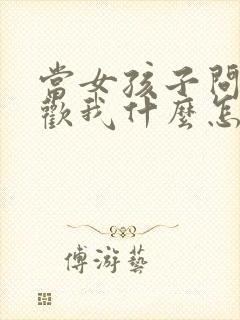 當女孩子問
歡我什麼怎
傅游藝